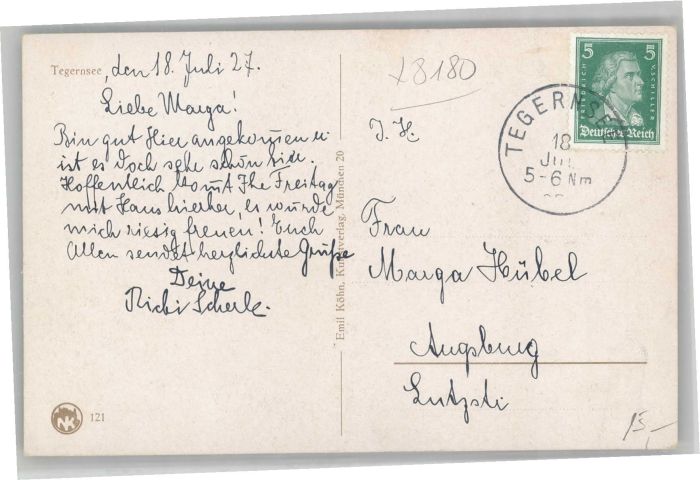 Tegernsee, den 18. Juli 27.
Liebe Marga!
Bin gut Hier angekommen u
ist es doch sehr schön hier.
Hoffentlich kommt Ihr Freitag
mit Hans hierher, es würde
mich riesig freuen! Euch
Allen sendet herzlichste Grüße
Deine
Richi Scherle.
NK
121
Emil Köhn, Kunstverlag, München 20
x8180
5 5
FRIEDRICH V. SCHILLER
Deutsches Reich
TEGERNSEE
18
JUL
5-6 Nm
I. H.
Frau
Marga Hübel
Augsburg
Lutzstr
15,-